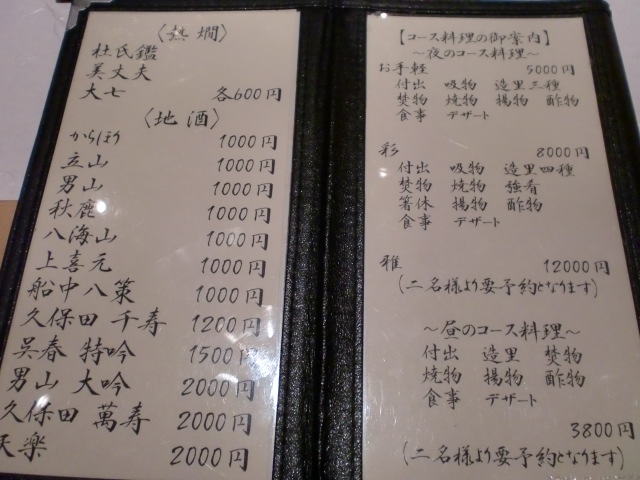 〈熱燗〉
杜氏鑑
美丈夫
大七 各600円
〈地酒〉
からほり 1000円
立山 1000円
男山 1000円
秋鹿 1000円
八海山 1000円
上喜元 1000円
船中八策 1000円
久保田 千寿 1200円
呉春 特吟 1500円
男山 大吟 2000円
久保田 萬寿 2000円
天楽 2000円
【コース料理の御案内】
～夜のコース料理～
お手軽 5000円
付出 吸物 造里三種
焚物 焼物 揚物 酢物
食事 デザート
彩 8000円
付出 吸物 造里四種
焚物 焼物 強肴
箸休 揚物 酢物
食事 デザート
雅 12000円
(二名様より要予約となります)
～昼のコース料理～
付出 造里 焚物
焼物 揚物 酢物
食事 デザート
3800円
(二名様より要予約となります)